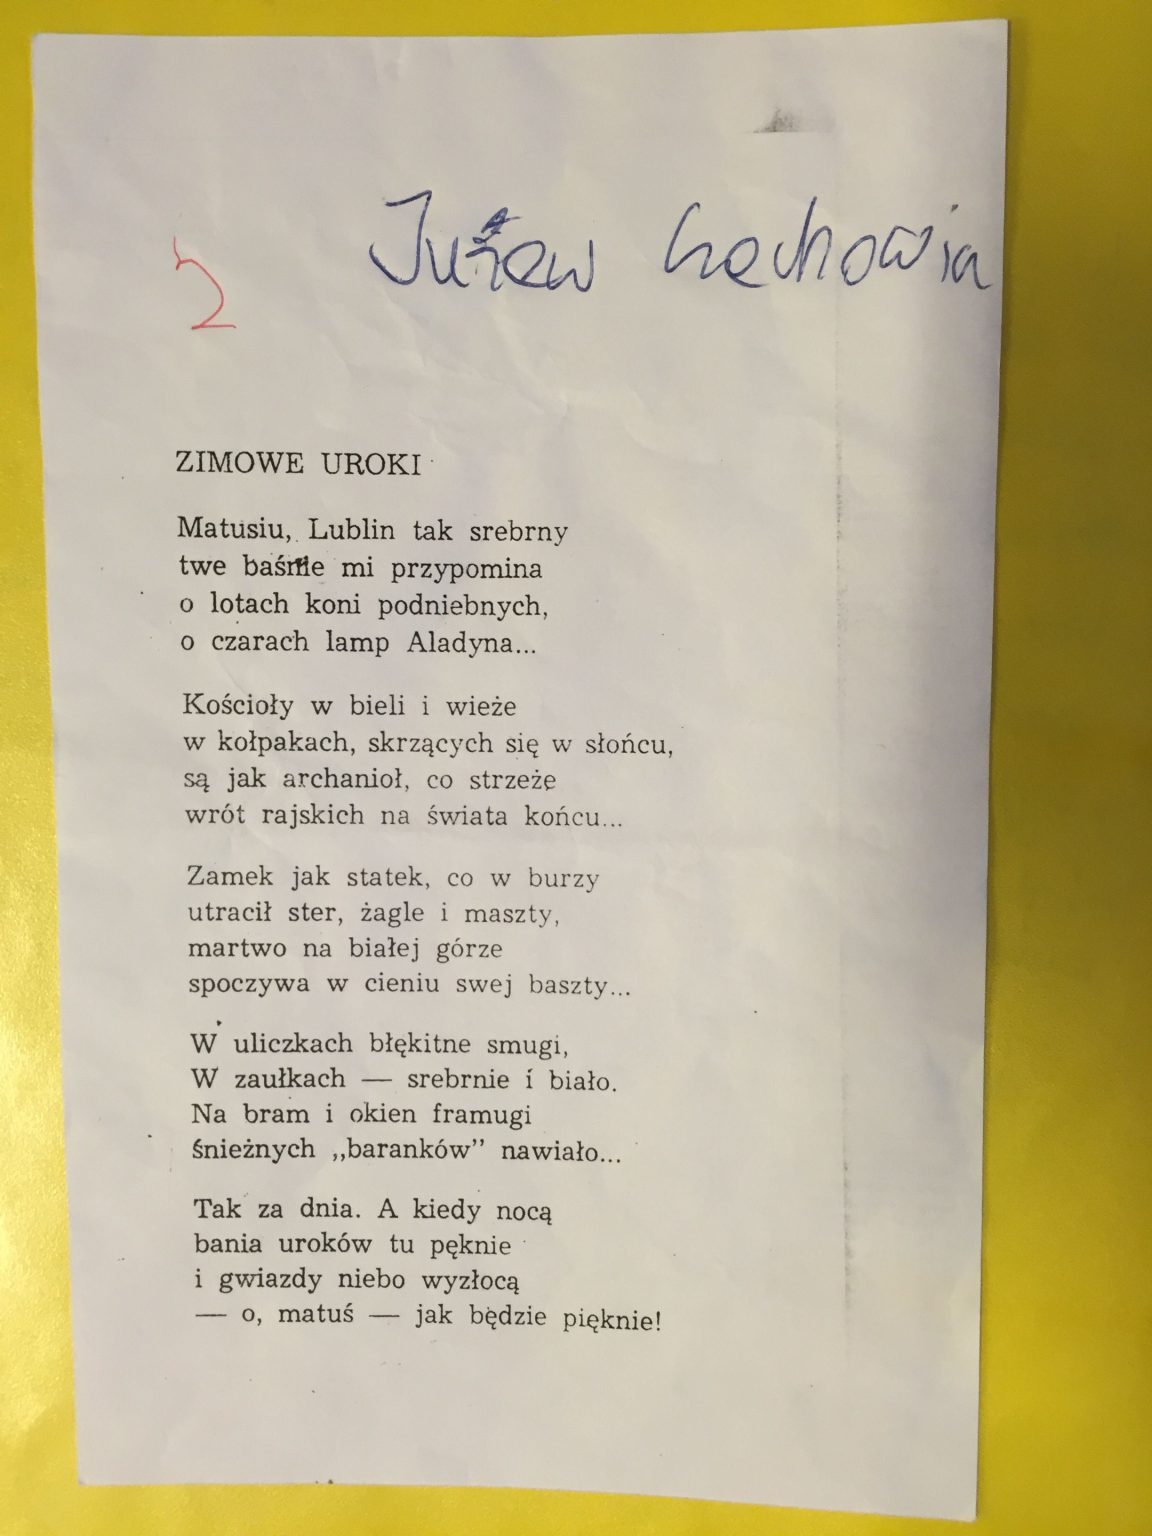 2
ZIMOWE UROKI
Matusiu, Lublin tak srebrny
twe baśnie mi przypomina
o lotach koni podniebnych,
o czarach lamp Aladyna...
Kościoły w bieli i wieże
w kołpakach, skrzących się w słońcu,
są jak archanioł, co strzeże
wrót rajskich na świata końcu...
Zamek jak statek, co w burzy
utracił ster, żagle i maszty,
martwo na białej górze
spoczywa w cieniu swej baszty...
W uliczkach błękitne smugi,
W zaułkach — srebrnie i biało.
Na bram i okien framugi
śnieżnych „baranków” nawiało...
Tak za dnia. A kiedy nocą
bania uroków tu pęknie
i gwiazdy niebo wyzłocą
— o, matuś — jak będzie pięknie!